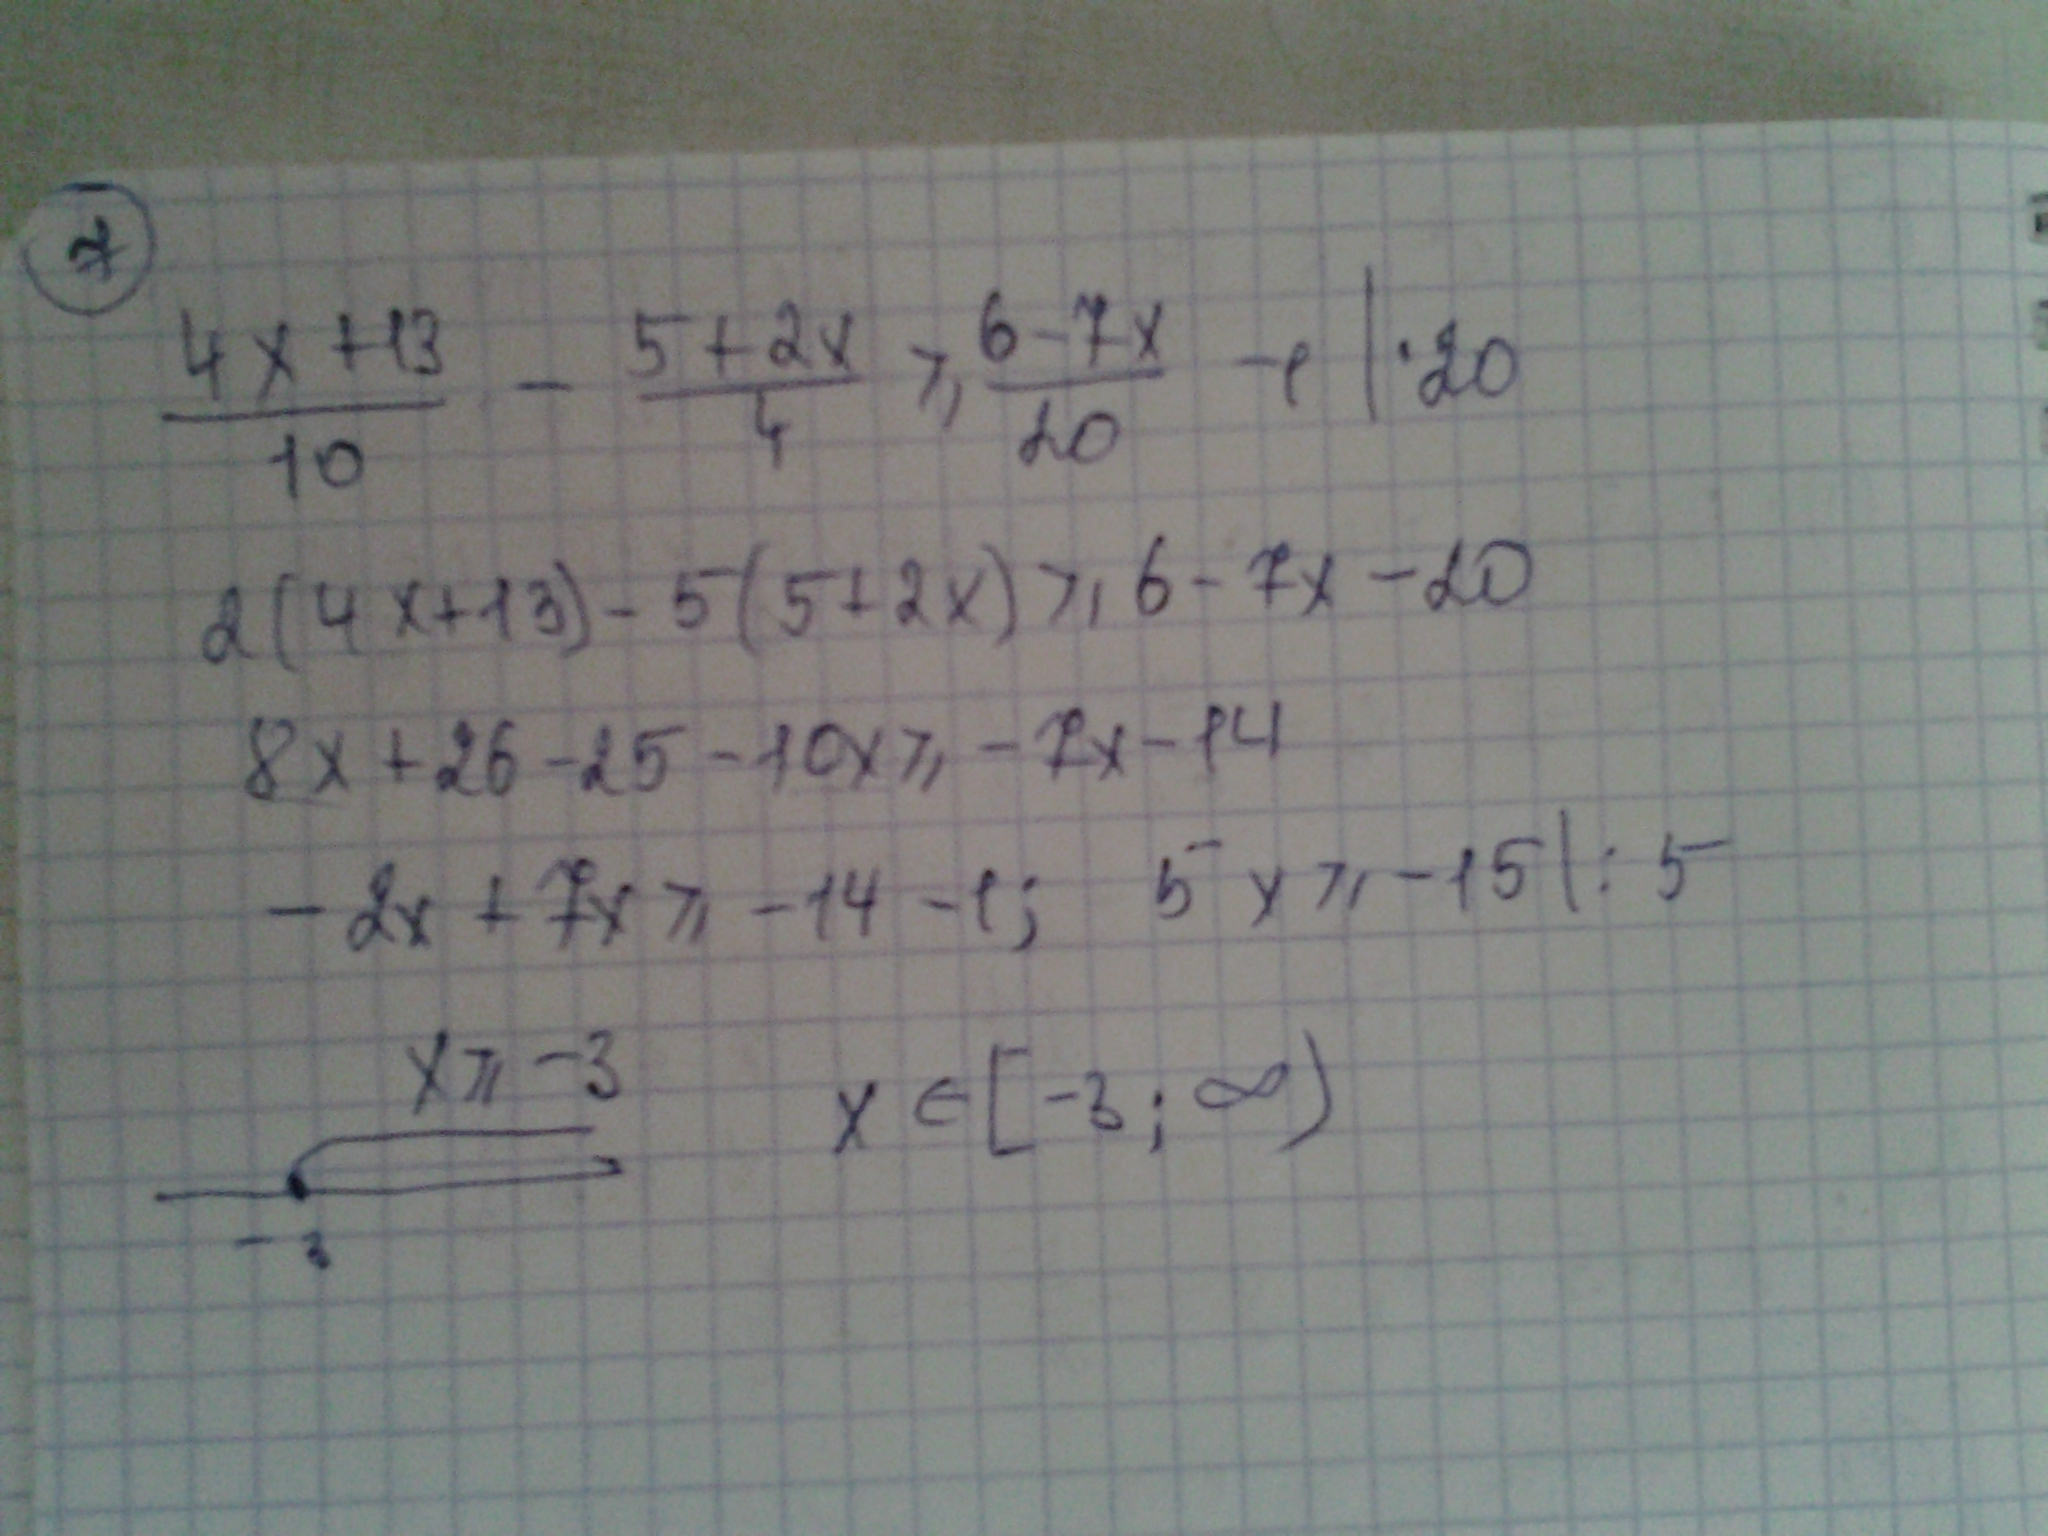 7
(4x+13)/10 - (5+2x)/4 ⩾ (6-7x)/20 -1 |·20
2(4x+13)-5(5+2x)⩾6-7x-20
8x+26-25-10x⩾-7x-14
-2x+7x⩾-14-1; 5x⩾-15|:5
x⩾-3 x∈[-3;∞)
-3